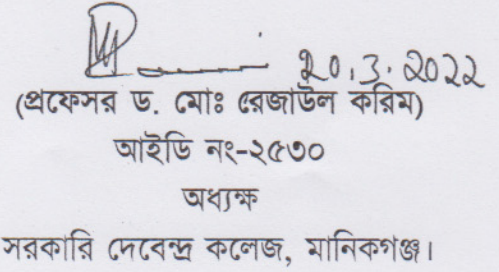 20.3.2022
(প্রফেসর ড. মোঃ রেজাউল করিম)
আইডি নং-২৫৩০
অধ্যক্ষ
সরকারি দেবেন্দ্র কলেজ, মানিকগঞ্জ।